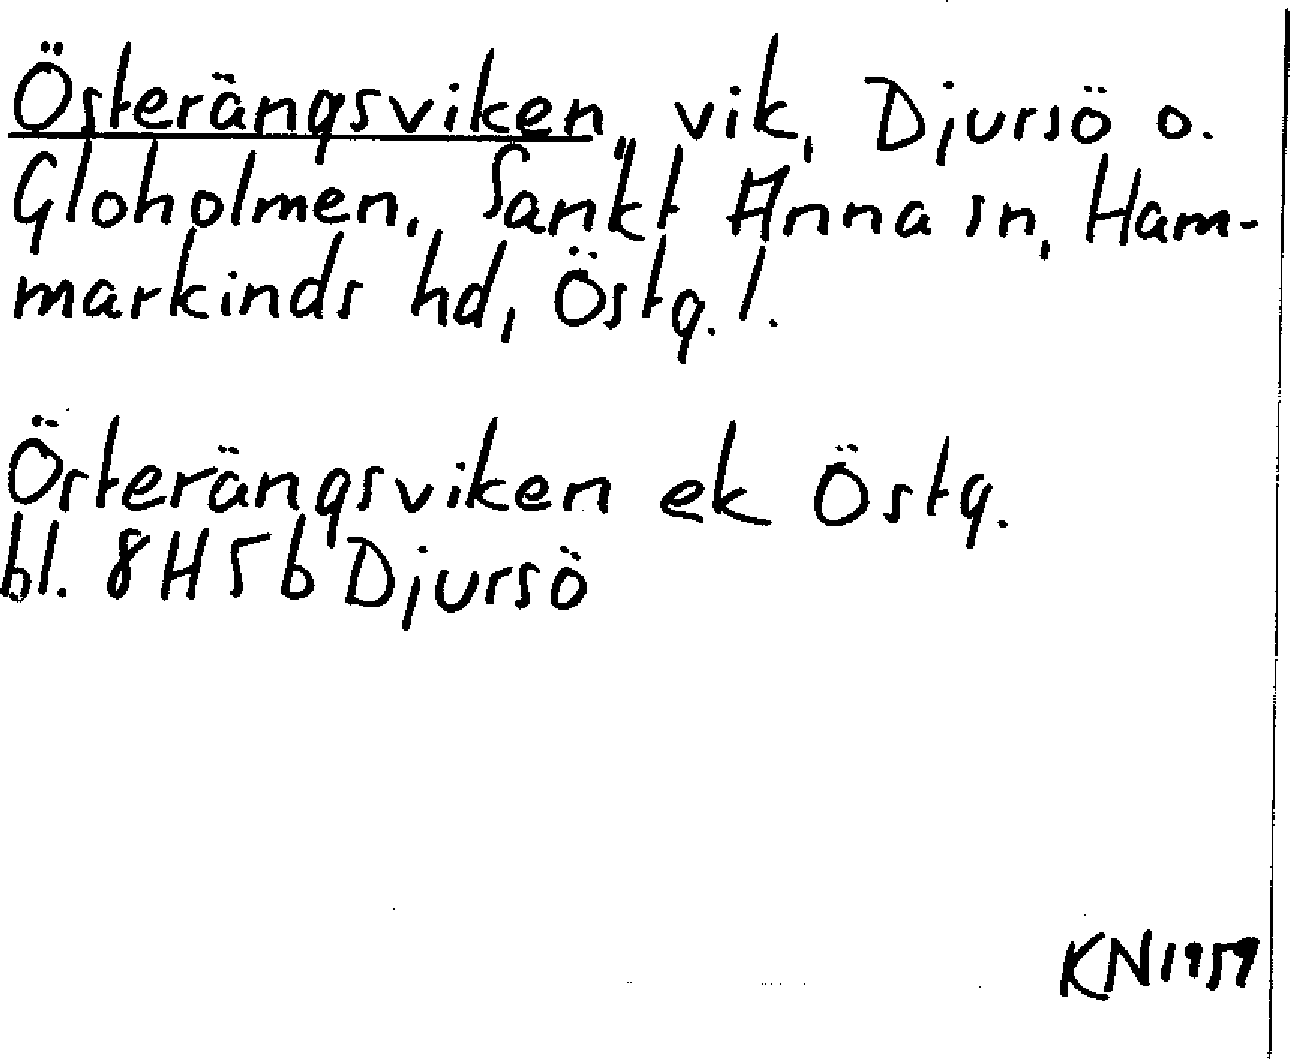 Österängsviken, vik, Djursö o.
Gloholmen, Sankt Anna sn, Ham-
markinds hd, Östg. l.
Österängsviken ek Östg.
bl. 8H5b Djursö
KN1959